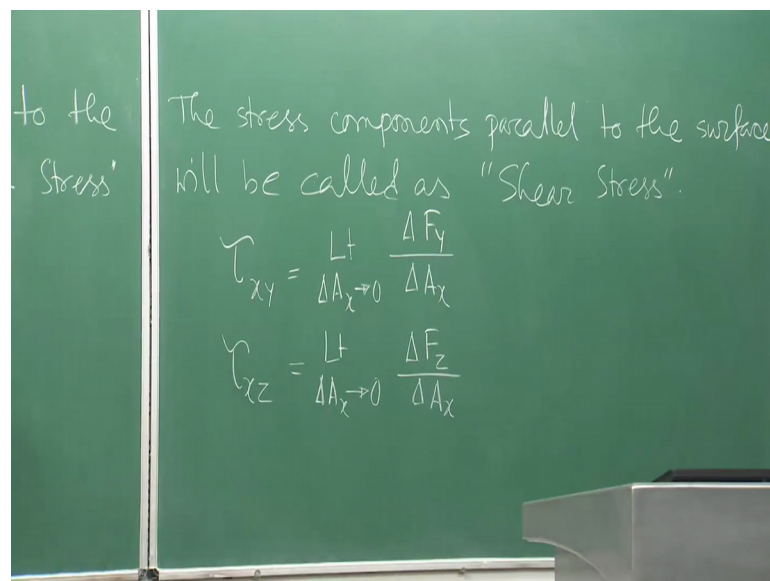 to the
Stress"
The stress components parallel to the surface
will be called as "Shear Stress".
τxy = Lt ΔAx→0 ΔFy / ΔAx
τxz = Lt ΔAx→0 ΔFz / ΔAx